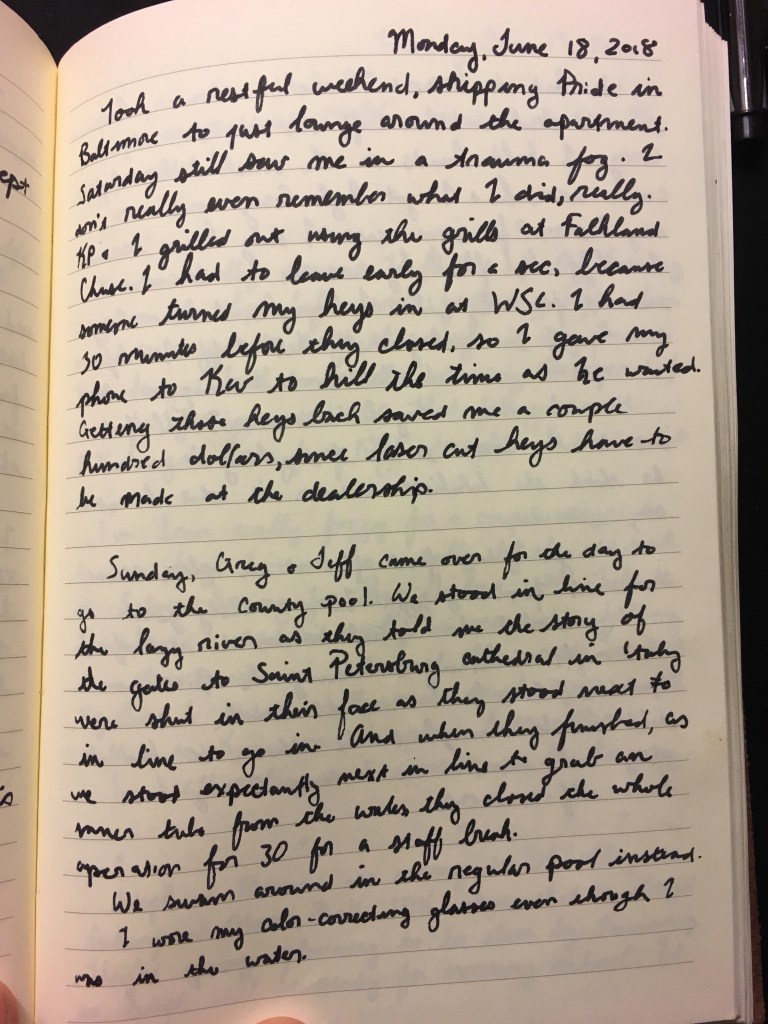 Monday, June 18, 2018
Took a restful weekend, skipping Pride in
Baltimore to just lounge around the apartment.
Saturday still saw me in a trauma fog. I
don't really even remember what I did, really.
KP & I grilled out using the grills at Falkland
Chase. I had to leave early for a sec, because
someone turned my keys in at WSC. I had
30 minutes before they closed, so I gave my
phone to Kev to kill the time as he wanted.
Getting those keys back saved me a couple
hundred dollars, since laser cut keys have to
be made at the dealership.
Sunday, Greg & Jeff came over for the day to
go to the county pool. We stood in line for
the lazy river as they told me the story of
the gates to Saint Petersburg cathedral in Italy
were shut in their face as they stood next to
in line to go in. And when they finished, as
we stood expectantly next in line to grab an
inner tube from the water they closed the whole
operation for 30 for a staff break.
We swam around in the regular pool instead.
I wore my color-correcting glasses even though I
was in the water.
ept
s